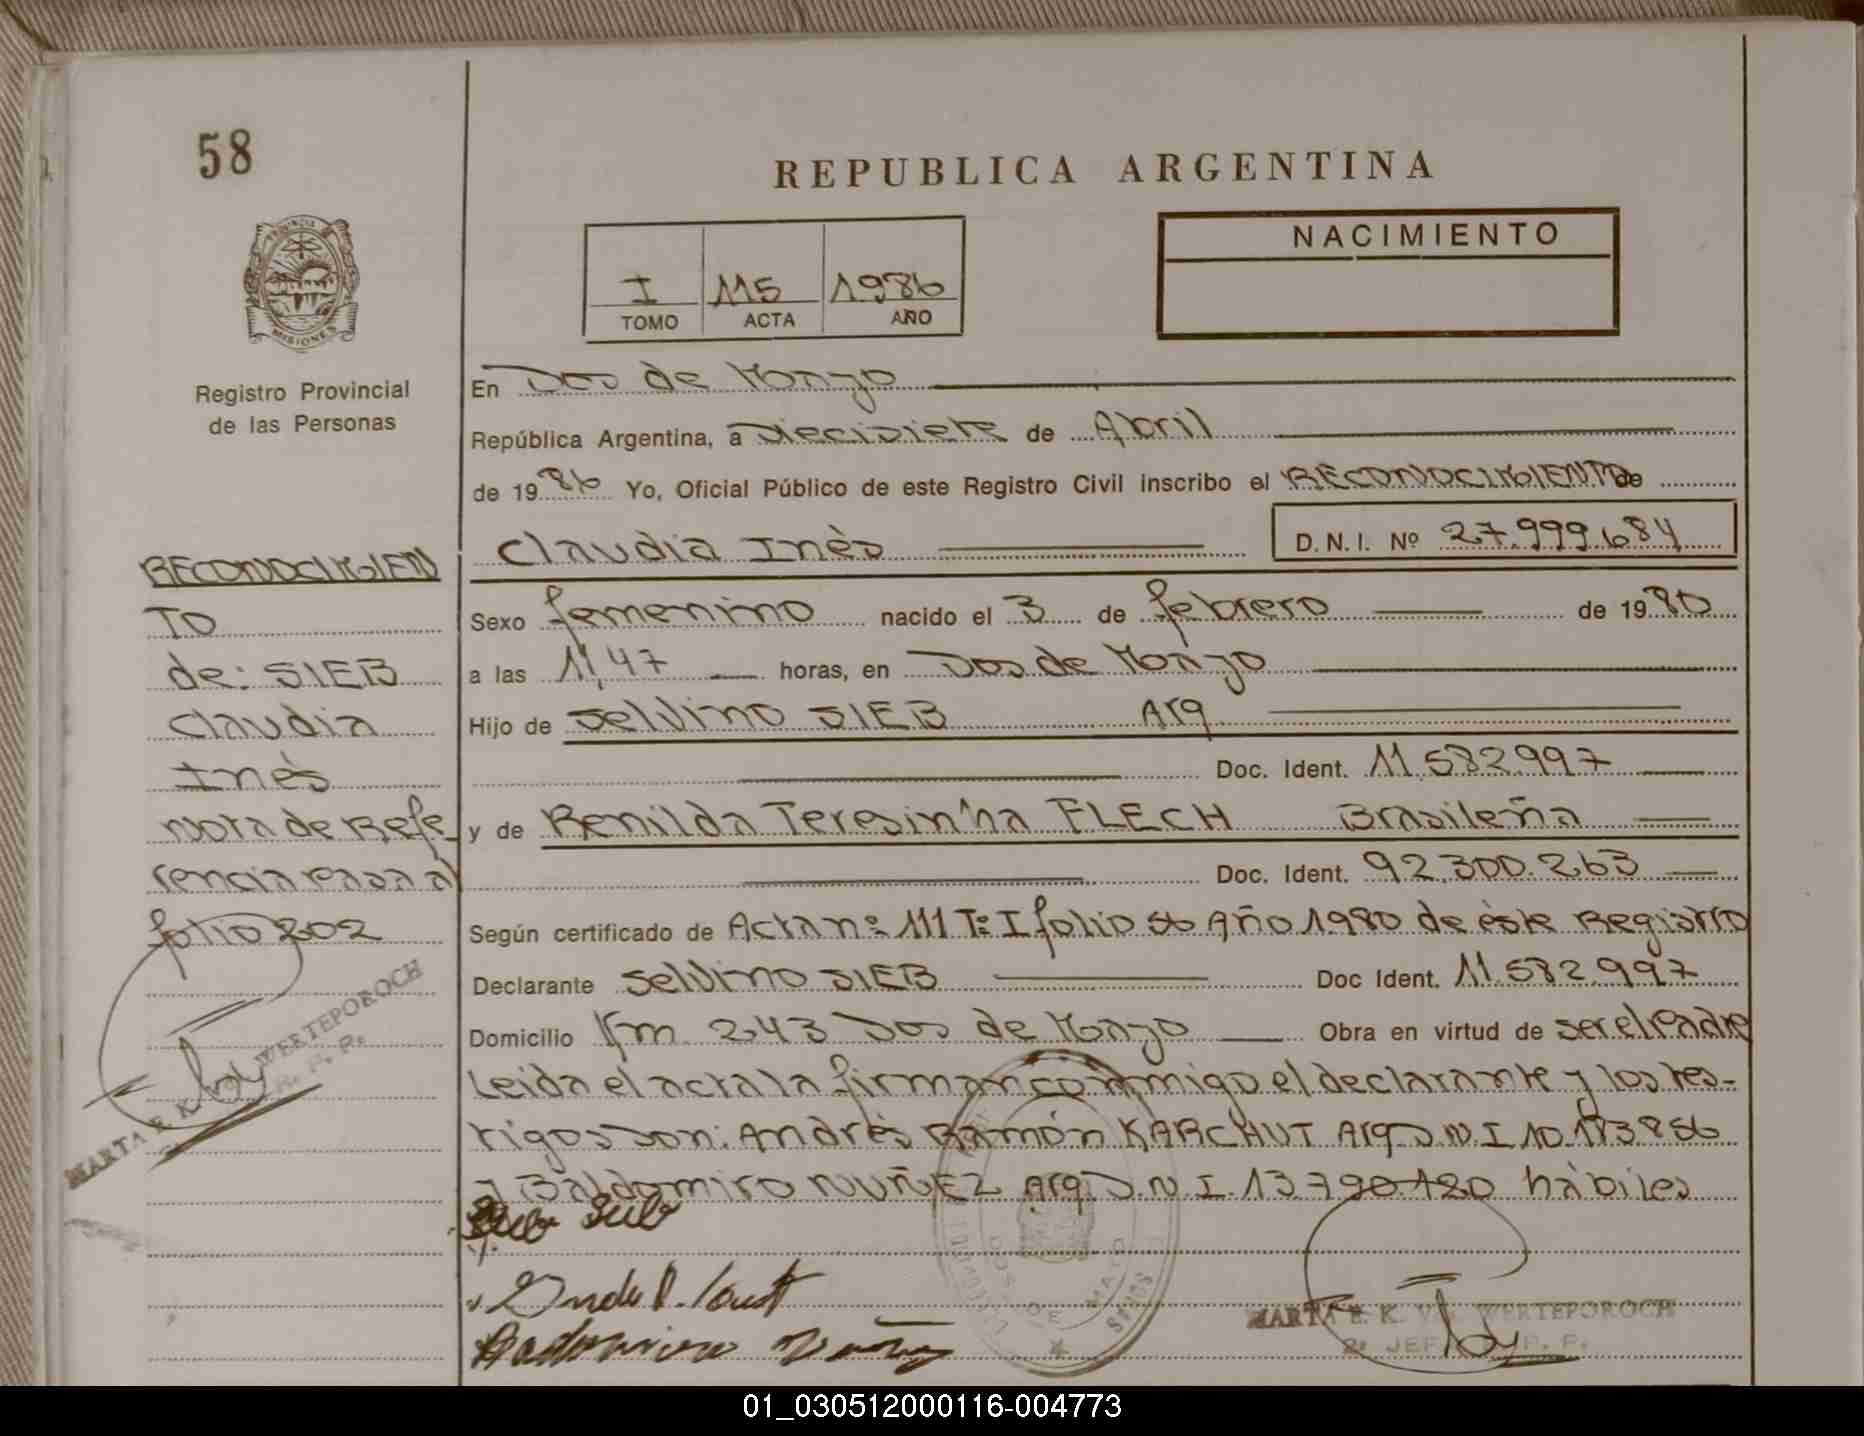 58
REPUBLICA ARGENTINA
NACIMIENTO
I 115 1986
TOMO ACTA AÑO
PROVINCIA
MISIONES
Registro Provincial
de las Personas
En Dos de Mayo
República Argentina, a Diecisiete de Abril
de 1986 Yo, Oficial Público de este Registro Civil inscribo el RECONOCIMIENTO de
Claudia Inès D.N.I. Nº 27.999.684
Sexo femenino nacido el 3 de febrero de 1980
a las 11,47 horas, en Dos de Mayo
Hijo de Selvino SIEB Arg
Doc. Ident. 11.582.997
y de Renilda Teresinha FLECH Brasileña
Doc. Ident. 92.300.263
Según certificado de Acta nº 111 Tº I folio 56 Año 1980 de èste Registro
Declarante Selvino SIEB Doc Ident. 11.582.997
Domicilio Km 243 Dos de Mayo Obra en virtud de ser el Padre
Leida el acta la firman conmigo el declarante y los tes-
tigos son: Andrès Ramón KARCHUT Arg D.N.I 10.173.856
y Baldomiro NUÑEZ Arg. D.N.I. 13.790.120 hàbiles
RECONOCIMIEN
TO
de: SIEB
Claudia
Inès
Nota de Refe_
rencia pasa al
folio 202
MARTA E. K. WERTEPOROCH
R. P. P.
DOS DE MAYO
MARTA E. K. V. WERTEPOROCH
JEF P. P.
01_030512000116-004773